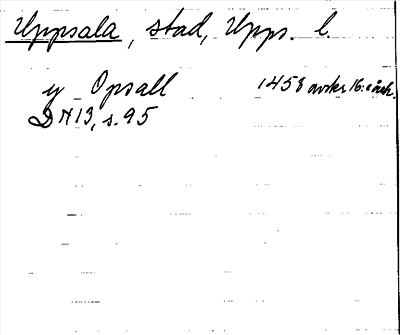 Uppsala, stad, Upps. l.
y Opsall 1453 avskr. 16:e årh.
DN 13, s. 95